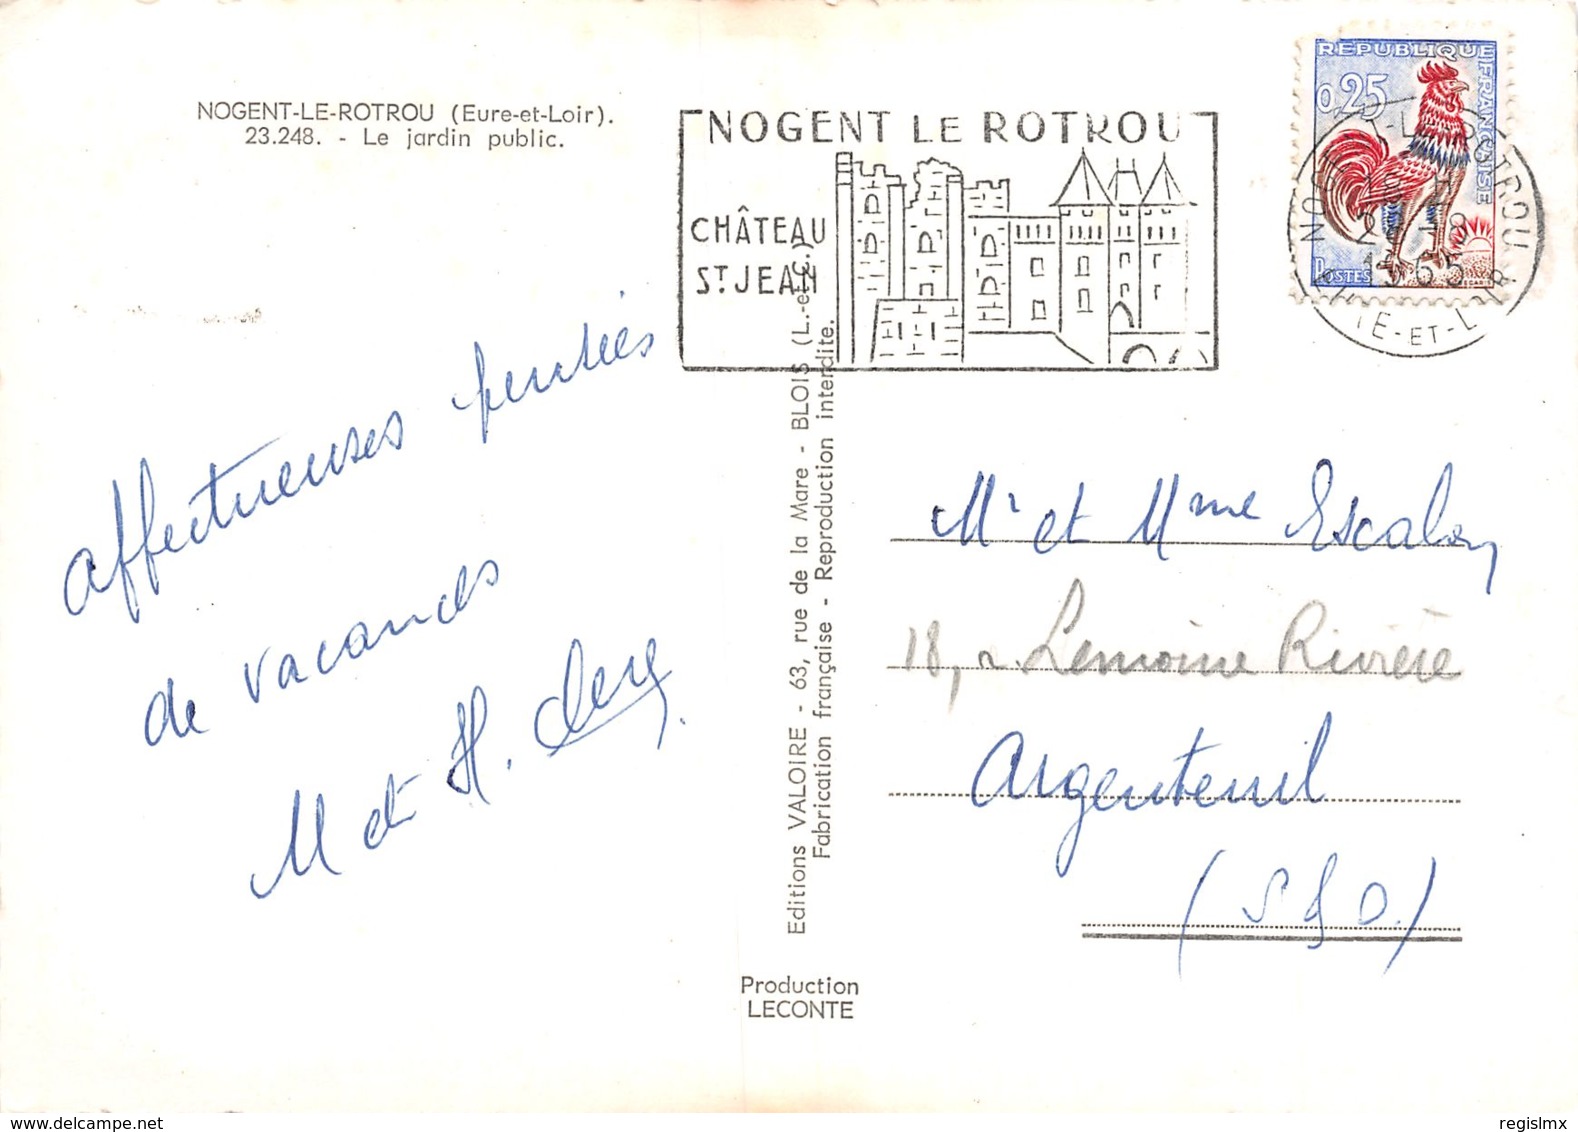 NOGENT-LE-ROTROU (Eure-et-Loir).
23.248. - Le jardin public.
NOGENT LE ROTROU
CHÂTEAU
ST JEAN
REPUBLIQUE FRANÇAISE
0,25
POSTES
DECARIS
NOGENT-LE-ROTROU
1965
EURE-ET-LOIR
affectueuses pensées
de vacances
M et H. Clerg
Editions VALOIRE - 63, rue de la Mare - BLOIS (L.-et-C.)
Fabrication française - Reproduction interdite.
Production
LECONTE
Mr et Mme Escalon
18, r. Lemoine Rivière
Argenteuil
(S & O.)
delcampe.net
regislmx